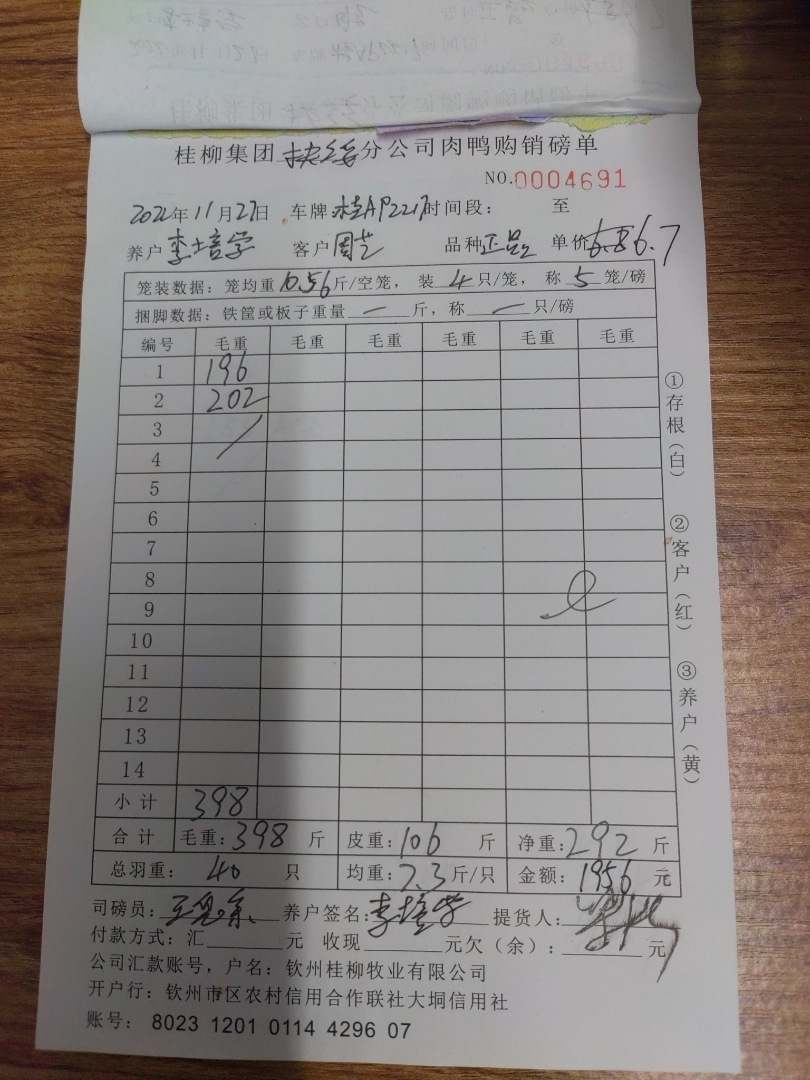 桂柳集团扶绥分公司肉鸭购销磅单
NO.0004691
2022年11月27日 车牌桂AP2217时间段: 至
养户李培学 客户周芝 品种正品 单价6.7
笼装数据:笼均重10.56斤/空笼, 装4只/笼, 称5笼/磅
捆脚数据:铁筐或板子重量一斤,称一只/磅
编号 毛重 毛重 毛重 毛重 毛重 毛重
1 196
2 202
3
4
5
6
7
8
9
10
11
12
13
14
小计 398
合计 毛重:398斤 皮重:106斤 净重:292斤
总羽重: 40只 均重:7.3斤/只 金额:1956元
司磅员: 养户签名:李培学 提货人:
付款方式:汇 元 收现 元欠(余): 元
公司汇款账号,户名:钦州桂柳牧业有限公司
开户行:钦州市区农村信用合作联社大垌信用社
账号: 8023 1201 0114 4296 07
①存根(白) ②客户(红) ③养户(黄)